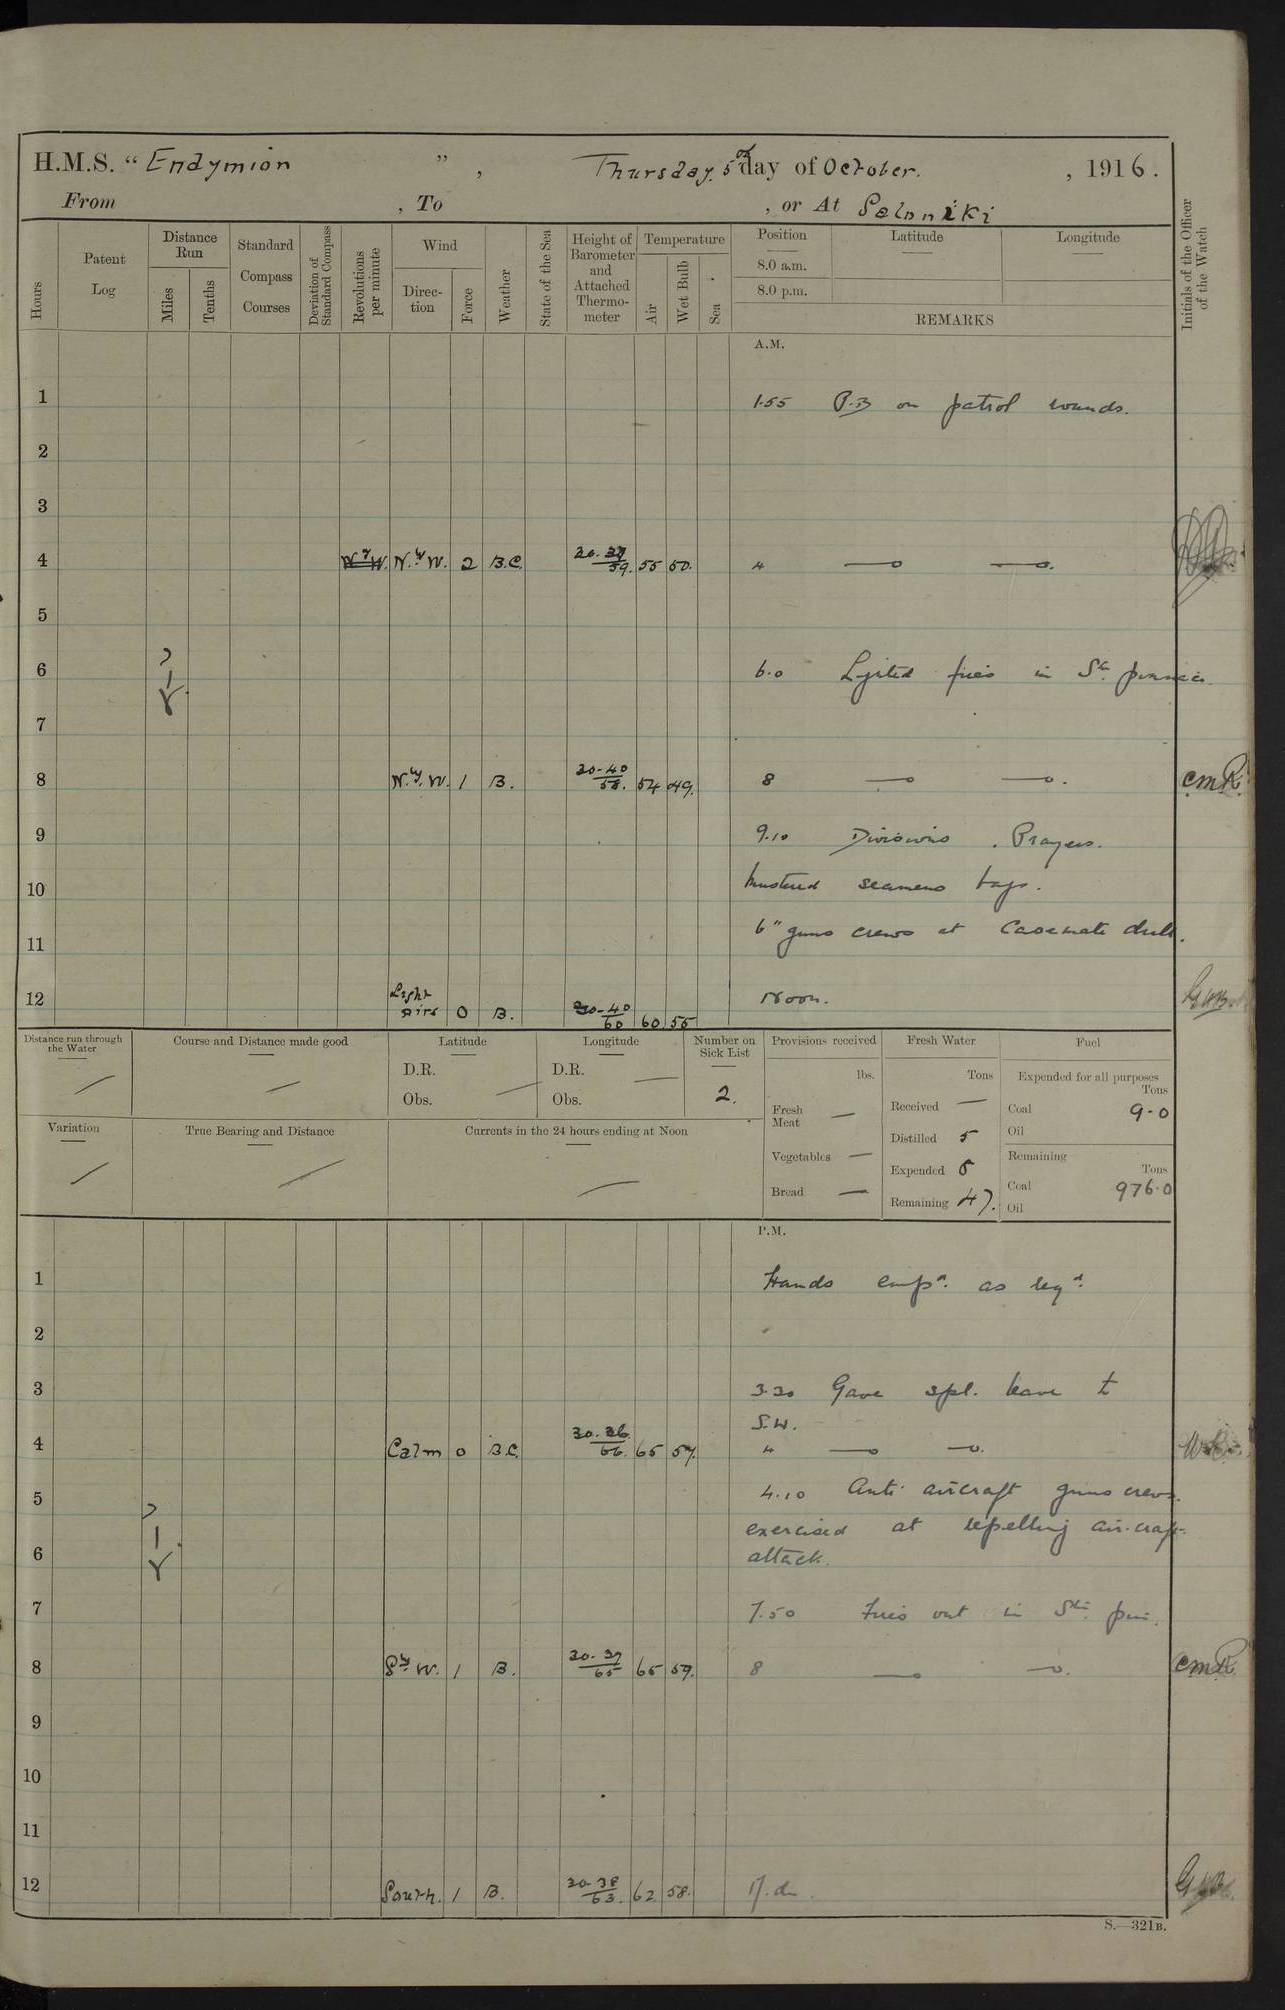 H.M.S. “ Endymion ” , Thursday. 5th day of October. , 1916.
From , To , or At Salonniki
Hours
Patent Log
Distance Run
Miles
Tenths
Standard Compass Courses
Deviation of Standard Compass
Revolutions per minute
Wind
Direction
Force
Weather
State of the Sea
Height of Barometer and Attached Thermometer
Temperature
Air
Wet Bulb
Sea
Position
8.0 a.m.
8.0 p.m.
Latitude
Longitude
REMARKS
Initials of the Officer of the Watch
A.M.
1 1.55 P.B on patrol rounds.
2
3
4 N.y W. N.y W. 2 B.C. 59. 55 50. 4
5
6 6.0 Lighted fires in
7
8 N.y. W. 1 B. 30-40 58. 54 49. 8 CMR
9 9.10 Divisions . Prayers.
10 Mustered seamens bags.
11 6" guns crews at Casemate drill.
12 Light airs 0 B. 30-40 60 60 55 Noon.
Distance run through the Water
Course and Distance made good
Latitude
D.R.
Obs.
Longitude
D.R.
Obs.
Number on Sick List
2.
Provisions received
lbs.
Fresh Meat —
Vegetables —
Bread —
Fresh Water
Tons
Received —
Distilled 5
Expended 5
Remaining 47.
Fuel
Expended for all purposes
Tons
Coal 9.0
Oil
Remaining
Tons
Coal 976.0
Oil
Variation
True Bearing and Distance
Currents in the 24 hours ending at Noon
P.M.
1 Hands empd. as reqd.
2
3 3.30 Gave spl. leave to
S.W.
4 Calm 0 B.C. 30.36 66. 65 57. 4
5 4.10 Anti aircraft guns crews
exercised at repelling air-craft
6 attack.
7 7.50 Fires out in
8 Sy W. 1 B. 30-37 65 65 59. 8 CMR
9
10
11
12 South. 1 B. 30-38 63. 62 58.
S.—321B.